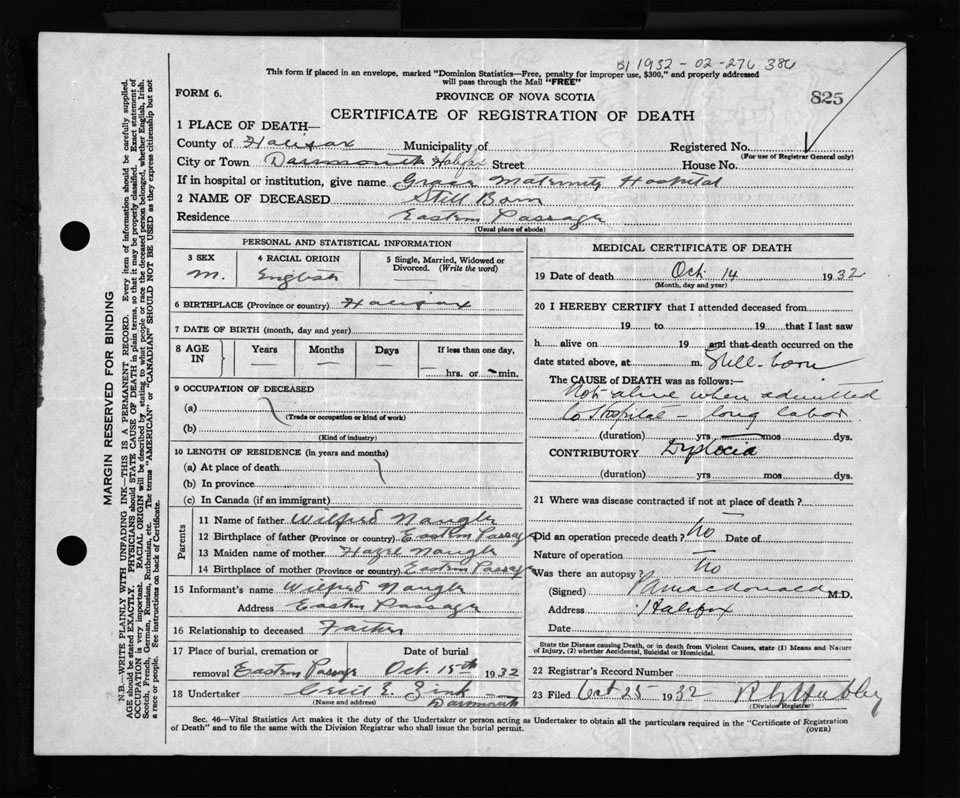 B1 1932-02-276 386
This form if placed in an envelope, marked "Dominion Statistics—Free, penalty for improper use, $300," and properly addressed
will pass through the Mail "FREE"
FORM 6.
PROVINCE OF NOVA SCOTIA
825
CERTIFICATE OF REGISTRATION OF DEATH
1 PLACE OF DEATH—
County of Halifax Municipality of Registered No.
(For use of Registrar General only)
City or Town Darmouth Halifax Street House No.
If in hospital or institution, give name Grace Maternity Hospital
2 NAME OF DECEASED Still Born
Residence Eastern Passage
(Usual place of abode)
PERSONAL AND STATISTICAL INFORMATION
3 SEX 4 RACIAL ORIGIN 5 Single, Married, Widowed or
Divorced. (Write the word)
M. English
6 BIRTHPLACE (Province or country) Halifax
7 DATE OF BIRTH (month, day and year)
8 AGE IN Years Months Days If less than one day,
— — — — hrs. or — min.
9 OCCUPATION OF DECEASED
(a)
(Trade or occupation or kind of work)
(b)
(Kind of industry)
10 LENGTH OF RESIDENCE (in years and months)
(a) At place of death
(b) In province
(c) In Canada (if an immigrant)
Parents
11 Name of father Wilfred Naugle
12 Birthplace of father (Province or country) Eastern Passage
13 Maiden name of mother Hazel Naugle
14 Birthplace of mother (Province or country) Eastern Passage
15 Informant's name Wilfred Naugle
Address Eastern Passage
16 Relationship to deceased Father
17 Place of burial, cremation or Date of burial
removal Eastern Passage Oct. 15th 1932
18 Undertaker Cecil E. Zink
(Name and address) Darmouth
MEDICAL CERTIFICATE OF DEATH
19 Date of death Oct 14 1932
(Month, day and year)
20 I HEREBY CERTIFY that I attended deceased from
19 to 19 that I last saw
h alive on 19 and that death occurred on the
date stated above, at m. Still-born
The CAUSE of DEATH was as follows:—
Not alive when admitted
to Hospital – long labor
(duration) yrs mos dys.
CONTRIBUTORY Dystocia
(duration) yrs mos dys.
21 Where was disease contracted if not at place of death?
—
Did an operation precede death? No Date of
Nature of operation —
Was there an autopsy? No
(Signed) Macdonald M.D.
Address Halifax
Date
State the Disease causing Death, or in death from Violent Causes, state (1) Means and Nature
of Injury, (2) whether Accidental, Suicidal or Homicidal.
22 Registrar's Record Number
23 Filed Oct 25 1932 Hubley
(Division Registrar)
Sec. 46—Vital Statistics Act makes it the duty of the Undertaker or person acting as Undertaker to obtain all the particulars required in the "Certificate of Registration
of Death" and to file the same with the Division Registrar who shall issue the burial permit.
(OVER)
MARGIN RESERVED FOR BINDING
N.B.—WRITE PLAINLY WITH UNFADING INK—THIS IS A PERMANENT RECORD. Every item of information should be carefully supplied.
AGE should be stated EXACTLY. PHYSICIANS should STATE CAUSE OF DEATH in plain terms, so that it may be properly classified. Exact statement of
OCCUPATION is very important. RACIAL ORIGIN will be described by stating to what people or race the deceased person belonged, whether English, Irish,
Scotch, French, German, Russian, Ruthenian, etc. The terms "AMERICAN" or "CANADIAN" SHOULD NOT BE USED as they express citizenship but not
a race or people. See instructions on back of Certificate.